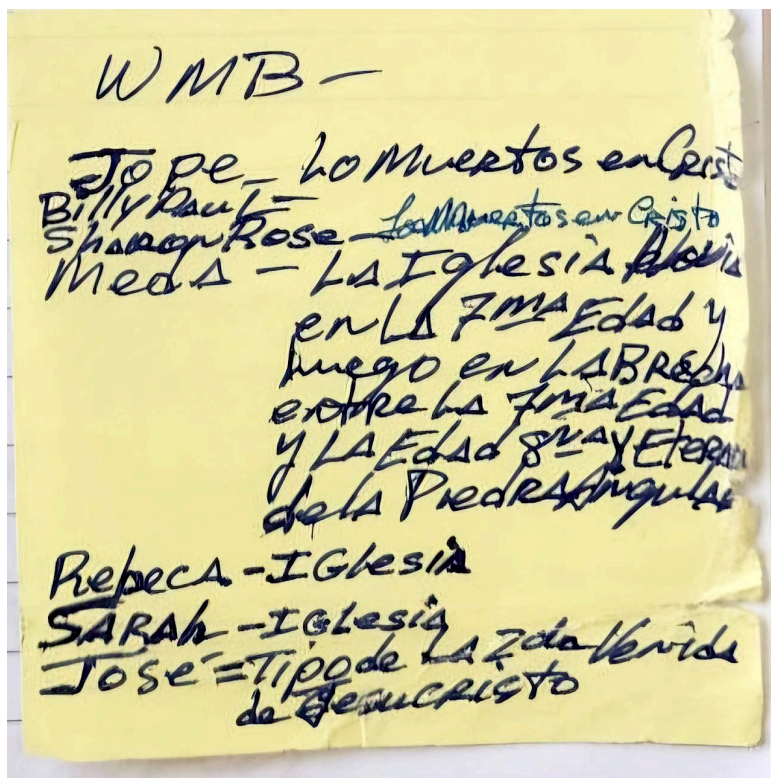 WMB -
Jope - Lo Muertos en Crist
Billy Paul -
Sharon Rose - Los Muertos en Cristo
Meda - LA Iglesia Novia
en LA 7ma Edad y
luego en LA Brecha
entre LA 7ma Edad
y LA Edad 8va y Eterna
de la Piedra Angular
Rebeca - IGlesia
SARAh - IGlesia
José = Tipo de LA 2da Venida
de Jesucristo